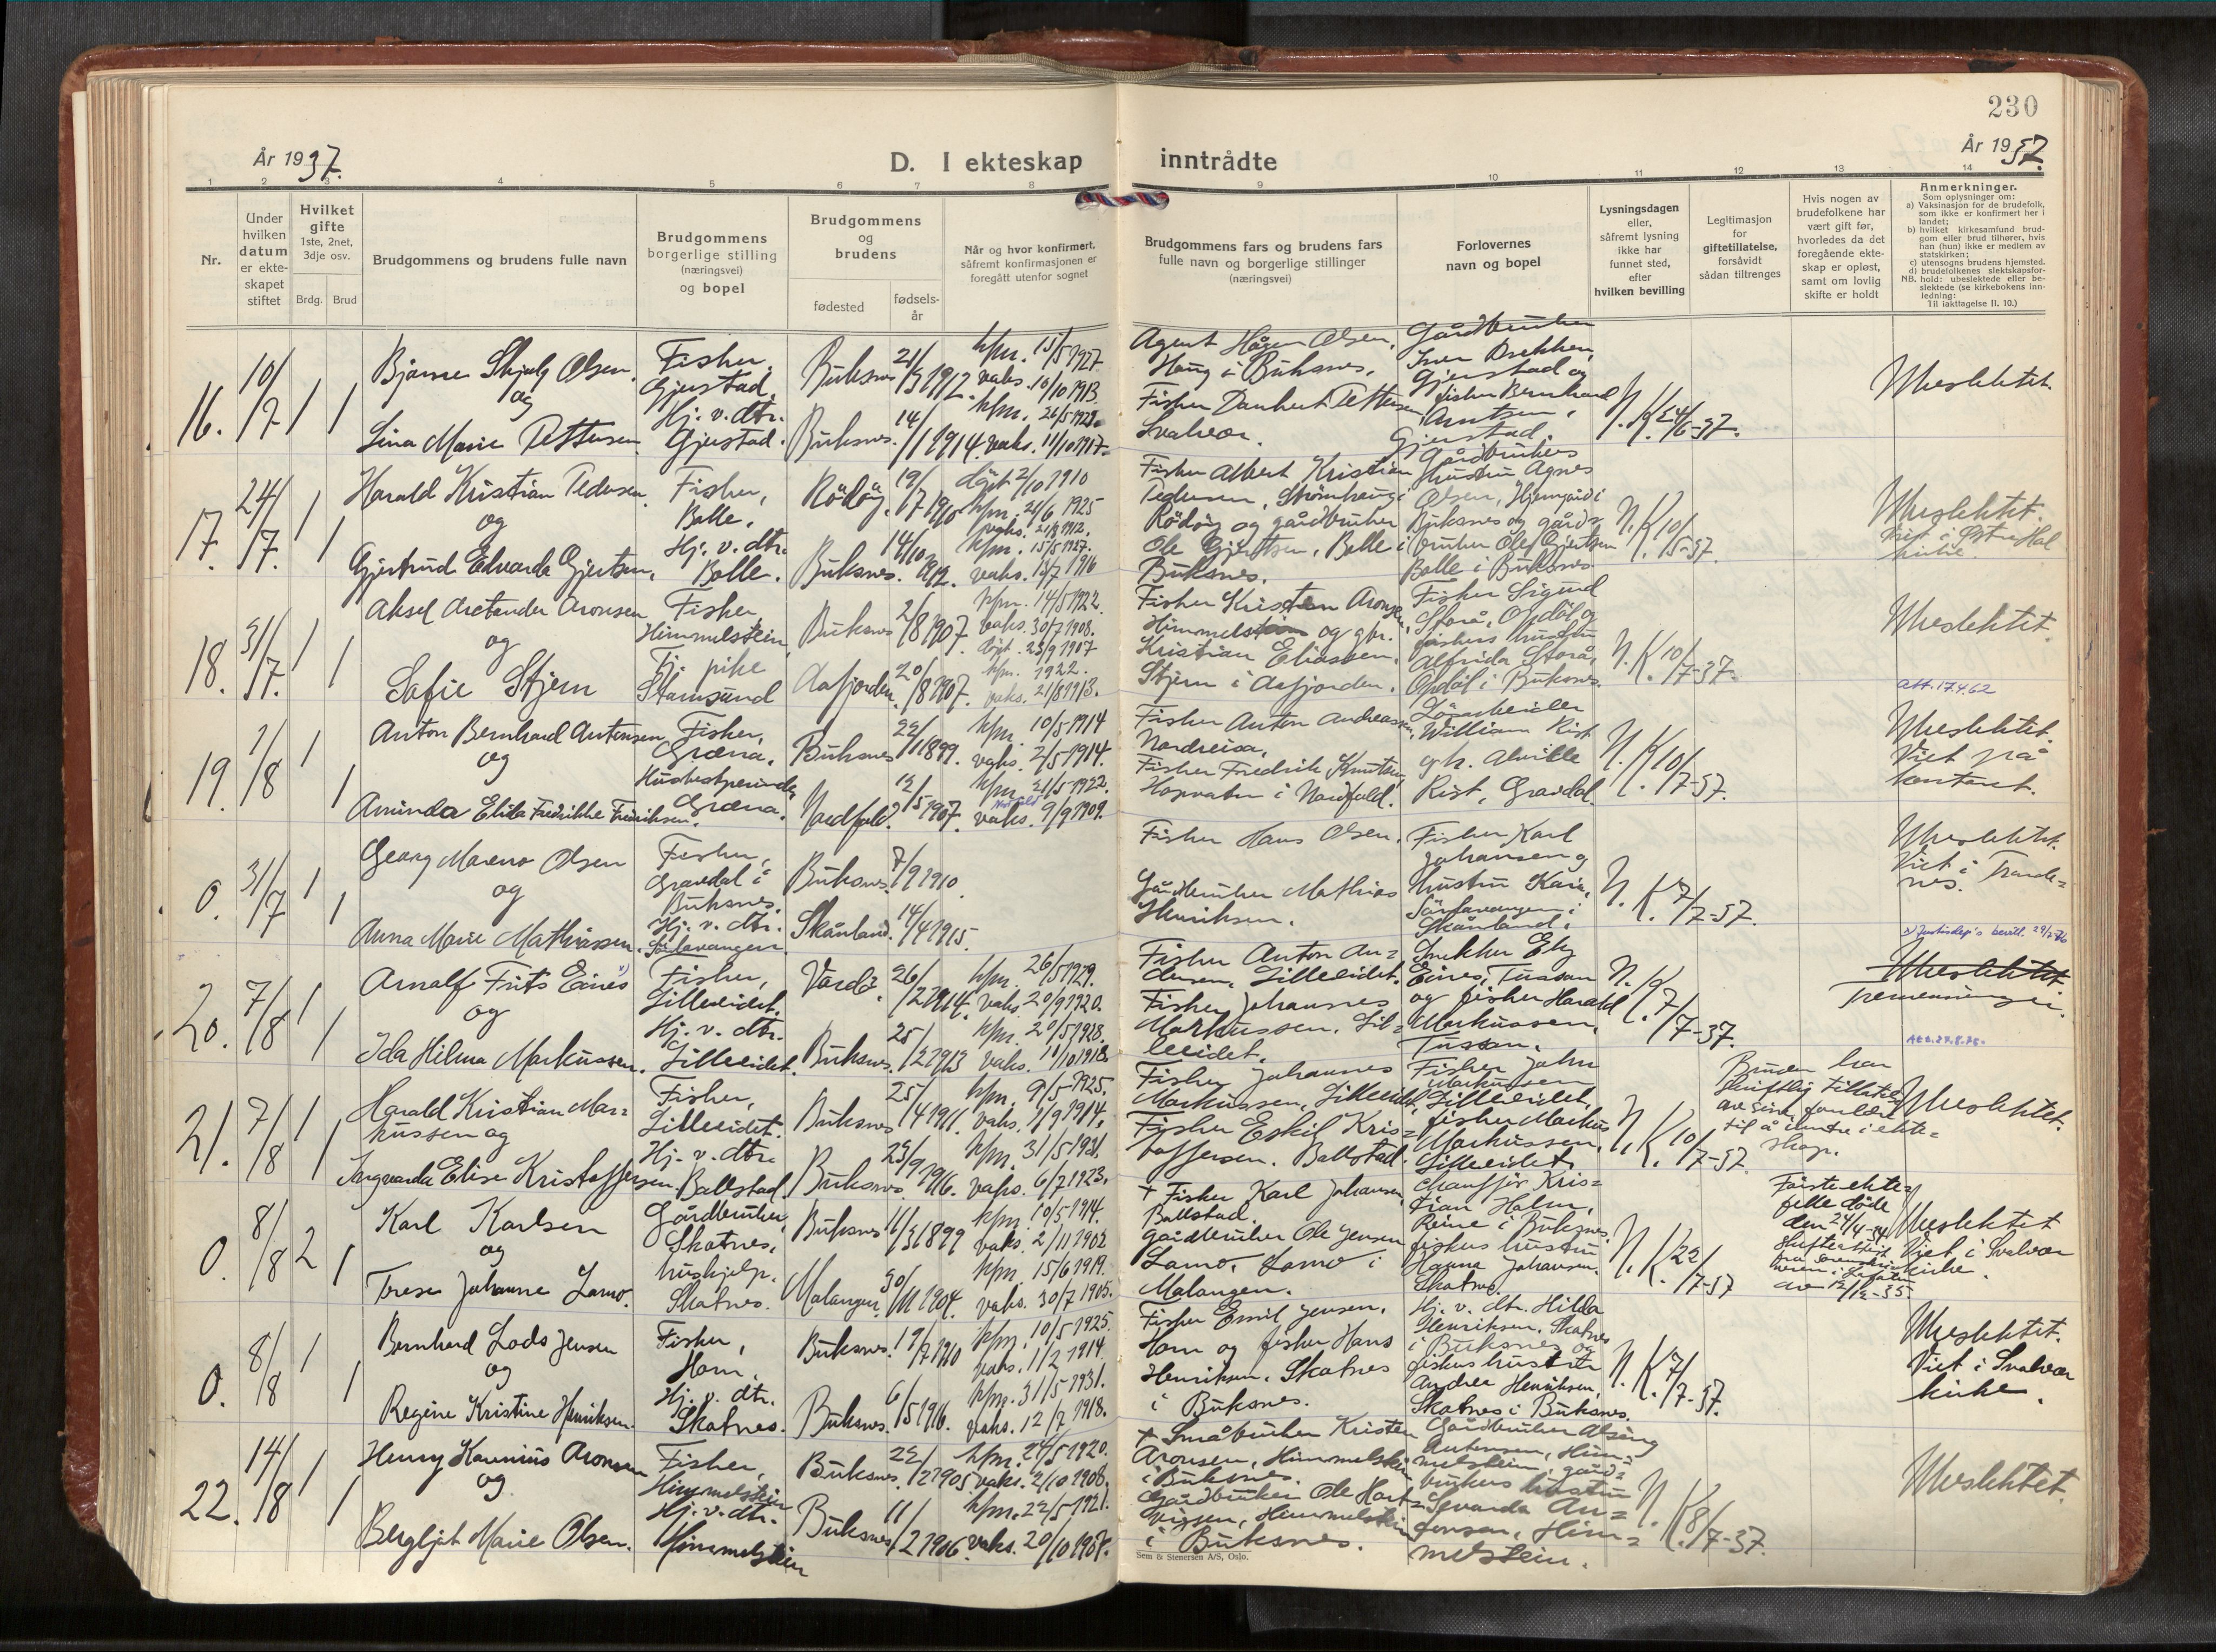 230
År 1937.
År 1937.
D. I ekteskap inntrådte
1 2 3 4 5 6 7 8 9 10 11 12 13 14
Nr.
Under hvilken datum er ekteskapet stiftet
Hvilket gifte
1ste, 2net, 3dje osv.
Brdg. Brud
Brudgommens og brudens fulle navn
Brudgommens borgerlige stilling (næringsvei) og bopel
Brudgommens og brudens
fødested
fødselsår
Når og hvor konfirmert, såfremt konfirmasjonen er foregått utenfor sognet
Brudgommens fars og brudens fars fulle navn og borgerlige stillinger (næringsvei)
Forlovernes navn og bopel
Lysningsdagen eller, såfremt lysning ikke har funnet sted, efter hvilken bevilling
Legitimasjon for giftetillatelse, forsåvidt sådan tiltrenges
Hvis nogen av brudefolkene har vært gift før, hvorledes da det foregående ekteskap er opløst, samt om lovlig skifte er holdt
Anmerkninger.
Som oplysninger om:
a) Vaksinasjon for de brudefolk, som ikke er konfirmert her i landet;
b) hvilket kirkesamfund brudgom eller brud tilhører, hvis han (hun) ikke er medlem av statskirken;
c) utensogns brudens hjemsted.
d) brudefolkenes slektskapsforhold: ubeslektede eller beslektede (se kirkebokens innledning:
NB.
Til iakttagelse II. 10.)
16. 10/7 1 1
Bjarne Skjelg Olsen
og
Lina Marie Pettersen
Fisker, Gjerstad.
Hj. v. dtr. Gjerstad.
Buksnes 21/3 1912.
Buksnes. 14/1 1914.
kfm. 15/5 1927.
vaks. 10/10 1913.
vaks. 11/10 1917.
Agent Hågen Olsen,
Haug i Buksnes.
Fisker Danhert Pettersen
Svalvær.
Gårdbruker
Iver Brekken,
Gjerstad og
fisker Bernhard
Arntsen,
Gjerstad.
N.K. 24/6-37.
Ubeslektet.
17. 24/7. 1 1
Harald Kristian Pedersen
og
Gjertrud Edvarda Gjertsen.
Fisker, Balle.
Hj. v. dtr. Balle.
Rödöy. 19/7 1910
Buksnes. 14/10 1912.
döpt 2/10 1910
kfm. 21/6 1925
kfm. 15/5 1927.
vaks. 13/7 1916
Fisker Albert Kristian
Pedersen, Strömhaug i
Rödöy og gårdbruker
Ole Gjertsen, Balle i
Buksnes.
Gårdbrukers
hustru Agnes
Olsen, Hjemgård i
Buksnes og gård=
bruker Olef Gjertsen
Balle i Buksnes
N.K. 10/5-37.
Ubeslektet.
18. 31/7. 1 1
Aksel Aretander Aronsen
og
Sofie Stjern
Fisker, Himmelstein,
Tj. pike Stamsund
Buksnes 2/8 1907.
Aafjorden. 20/8 1907.
kfm. 14/5 1922.
vaks. 30/7 1908.
döpt. 23/9 1907
kfm. 1922.
vaks. 21/8 1913.
Fisker Kristen Aronsen,
Himmelstein og gbr.
Kristian Eliassen.
Stjern i Aafjorden.
Fisker Sigurd
Storå, Opdöl og
fiskers hustru
Alfrida Storå,
Opdöl i Buksnes.
N.K. 10/7-37.
Ubeslektet.
att. 17.4.62
19. 1/8 1 1
Anton Bernhard Antonsen
og
Aminda Elida Fredrikke Fredriksen.
Fisker, Græna.
Husbestyrerinde, Græna.
Buksnes 22/1 1899.
Nordfold. 12/5 1907.
kfm. 10/5 1914
vaks. 2/5 1914.
kfm. 21/5 1922.
vaks. 9/9 1909.
Fisker Anton Andreassen,
Nordreisa.
Fisker Fredrik Knutsen,
Hopvatn i Nordfold.
Lösarbeider
William Rist
og h. Alvilde
Rist, Gravdal
N.K. 10/7-37.
Ubeslektet.
Viet på
kontoret.
0. 31/7 1 1
Georg Mareno Olsen
og
Anna Marie Mathiassen.
Fisker, Gravdal i Buksnes.
Hj. v. dtr.
Buksnes. 7/9 1910.
Skånland. 14/4 1915.
Fisker Hans Olsen.
Gårdbruker Mathias
Henriksen.
Fisker Karl
Johansen og
hustru Kaia,
Skånland.
N.K. 7/7-37.
Ubeslektet.
Viet i Trande=
nes.
x) Justisdep's bevill. 29/2-76
20. 7/8 1 1
Arnolf Frits Eines x)
og
Ida Hilma Markussen.
Fisker, Lilleeidet.
Hj. v. dtr. Lilleeidet.
Vardö. 26/2 1914.
Buksnes. 25/2 1913
kfm. 26/5 1929.
vaks. 20/9 1920.
kfm. 20/5 1928.
vaks. 11/10 1918.
Fisker Anton An=
dersen, Lilleeidet.
Fisker Johannes
Markussen, Lil=
leeidet.
Snekker Ely
Eines, Tussan
og fisker Harald
Markussen,
Tussan.
N.K. 7/7-37.
Ubeslektet
Tremenninger.
Att. 27.8.75.
21. 7/8 1 1
Harald Kristian Mar=
kussen og
Ingvarda Elise Kristoffersen.
Fisker, Lilleeidet.
Hj. v. dtr. Ballstad.
Buksnes 25/4 1911.
Buksnes. 23/9 1916.
kfm. 9/5 1925.
vaks. 1/9 1914.
kfm. 31/5 1931.
vaks. 6/7 1923.
Fisker Johannes
Markussen, Lilleeidet,
Fisker Eskil Kris=
toffersen. Ballstad.
Fisker John
Markussen
Lilleeidet,
fisker Markus
Markussen,
Lilleeidet.
N.K. 10/7-37.
Bruden har
skriftlig tillatelse
av sine foreldre
til å inntre i ekte=
skap.
Ubeslektet.
0. 8/8 2 1
Karl Karlsen
og
Terese Johanne Lamo.
Gårdbruker, Skotnes.
hushjelp. Skotnes.
Buksnes 16/3 1899
Malangen 30/11 1904.
kfm. 10/5 1914.
vaks. 2/11 1902
kfm. 15/6 1919.
vaks. 30/7 1905.
† Fisker Karl Johansen,
Ballstad.
Gårdbruker Ole Jensen
Lamo, Lamo i
Malangen.
Chaufför Kris=
tian Holm,
Reine i Buksnes.
fiskers hustru
Hanna Johansen.
Skotnes.
N.K. 22/7-37
Förste ekte=
felle döde
den 24/4-34
av 12/12-35.
Ubeslektet
Viet i Svalvær
kirke.
0. 8/8 1 1
Bernhard Lods Jensen
og
Regine Kristine Henriksen.
Fisker, Horn,
Hj. v. dtr. Skotnes.
Buksnes. 19/7 1910
Buksnes. 6/5 1916.
kfm. 10/5 1925.
vaks. 11/2 1914.
kfm. 31/5 1931.
vaks. 12/7 1918.
Fisker Emil Jensen,
Horn og fisker Hans
Henriksen, Skotnes
i Buksnes.
Hj. v. dtr. Hilda
Henriksen, Skotnes
i Buksnes og
fiskers hustru
Andrea Henriksen,
Skotnes i Buksnes.
N.K. 7/7-37.
Ubeslektet.
Viet i Svalvær
kirke.
22. 14/8 1 1
Henry Karenius Aronsen
og
Bergljot Marie Olsen.
Fisker, Himmelstein
Hj. v. dtr. Himmelstein
Buksnes. 22/2 1905
Buksnes 11/2 1906.
kfm. 24/5 1920.
vaks. 2/10 1908.
kfm. 22/5 1921.
vaks. 20/10 1908.
† Småbruker Kristen
Aronsen, Himmelstein
i Buksnes.
Gårdbruker Ole Hart=
vigsen, Himmelstein
i Buksnes.
Gårdbruker
Antonsen, Him=
melstein, gård=
brukers hustru
Sevarda An=
tonsen, Him=
melstein.
N.K. 8/7-37.
Ubeslektet.
Sem & Stenersen A/S, Oslo.